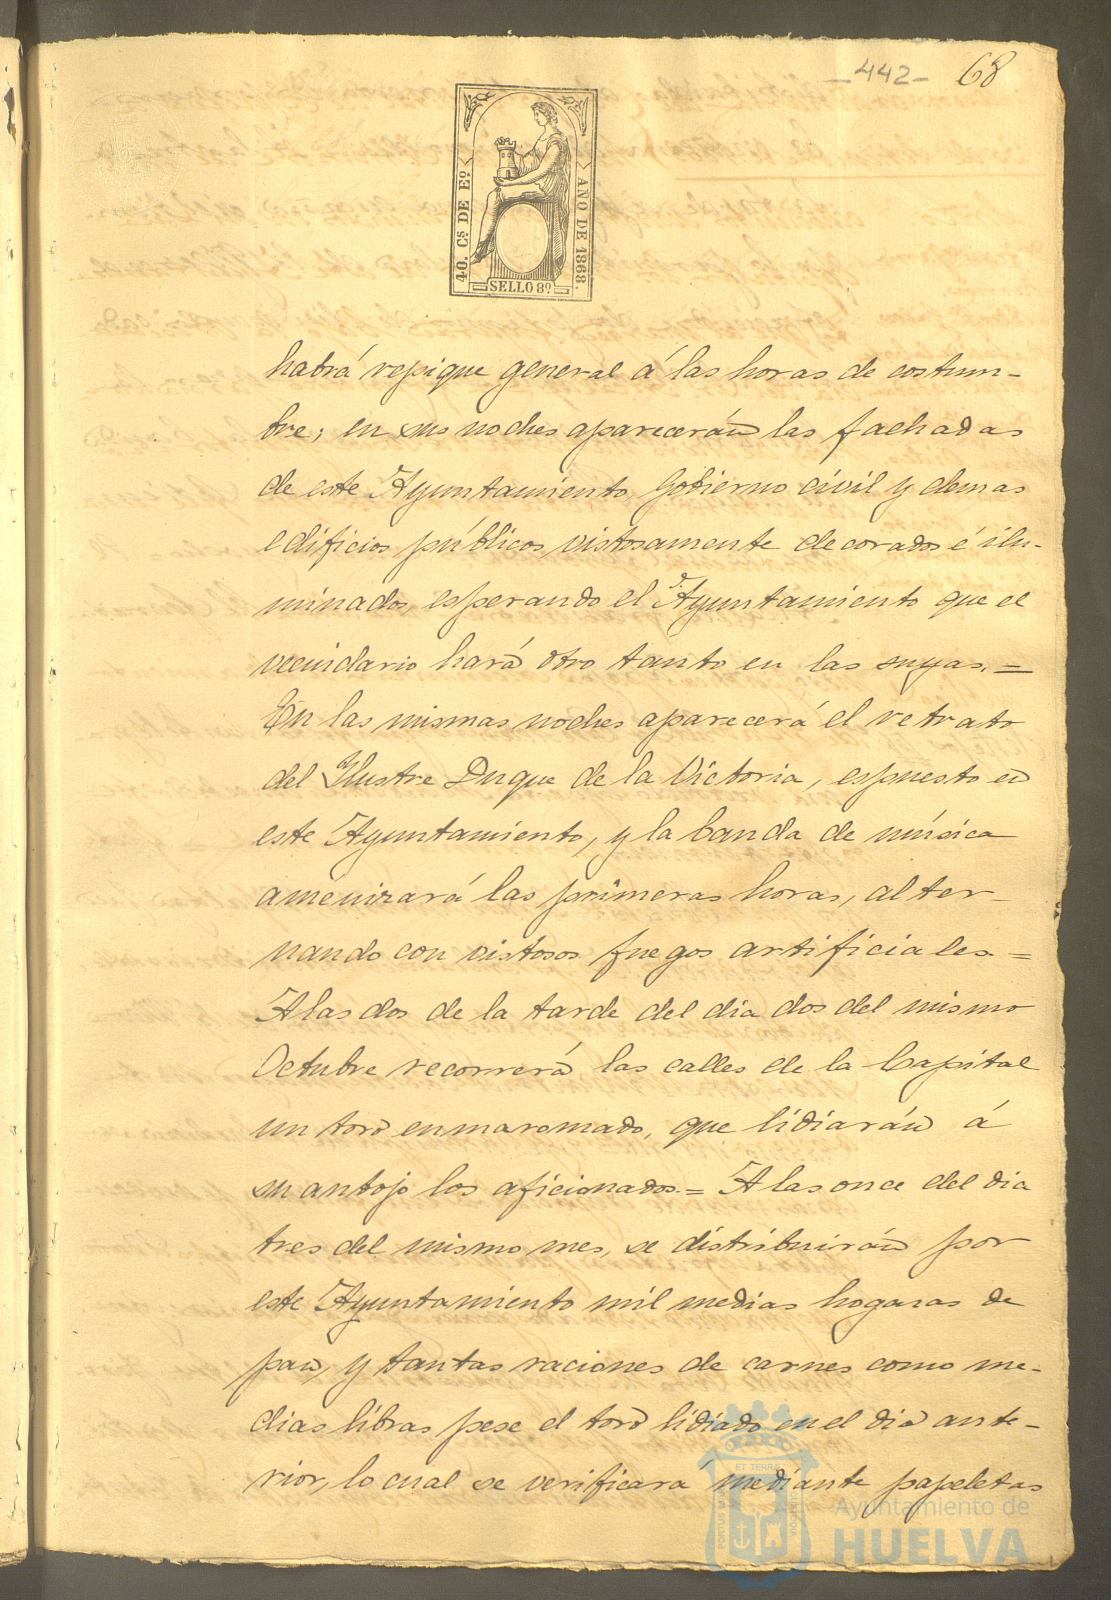 -442- 68
40. Cs DE Eo. AÑO DE 1868.
SELLO 8º
habrá repique general á las horas de costum-
bre; en sus noches aparecerán las fachadas
de este Ayuntamiento, Gobierno civil y demas
edificios públicos vistosamente decorados é ilu-
minados, esperando el Ayuntamiento que el
vecindario hará otro tanto en las suyas. =
En las mismas noches aparecerá el retrato
del Ylustre Duque de la Victoria, espuesto en
este Ayuntamiento, y la banda de música
amenizará las primeras horas, alter-
nando con vistosos fuegos artificiales. =
A las dos de la tarde del dia dos del mismo
Octubre recorrerá las calles de la Capital
un toro enmaromado, que lidiarán á
su antojo los aficionados. = A las once del dia
tres del mismo mes, se distribuirán por
este Ayuntamiento mil medias hogazas de
pan, y tantas raciones de carnes como me-
dias libras pese el toro lidiado en el dia ante-
rior, lo cual se verificará mediante papeletas
Ayuntamiento de
HUELVA